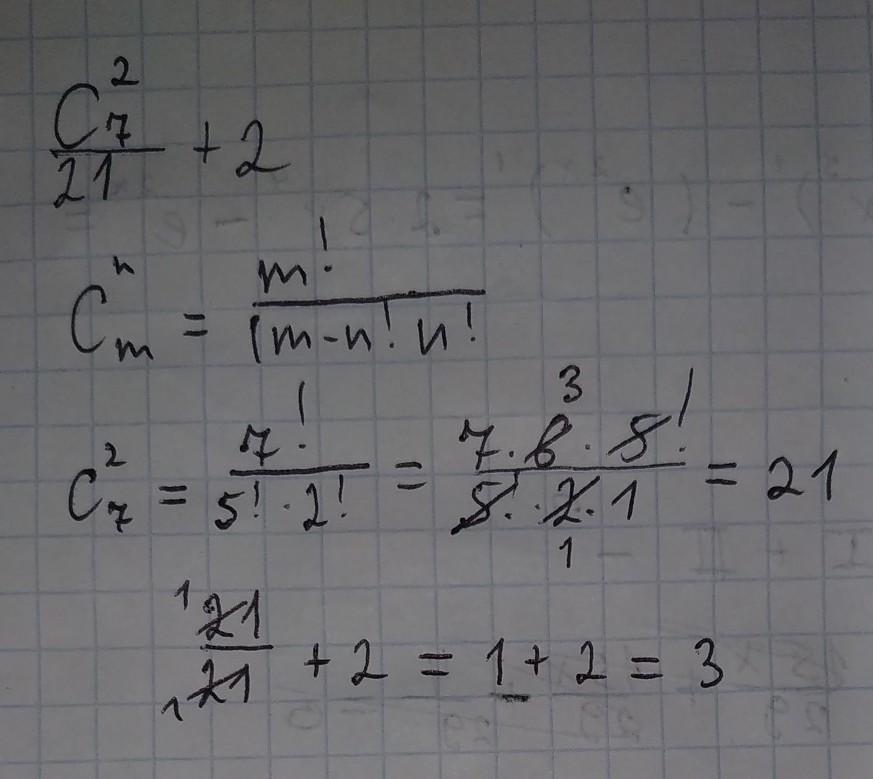 C₇² / 21 + 2
Cₘⁿ = m! / (m-n! n!
C₇² = 7! / 5! · 2! = 7 · 6 · 5! / 5! · 2 · 1 = 21
3
1
1 21 / 1 21 + 2 = 1 + 2 = 3